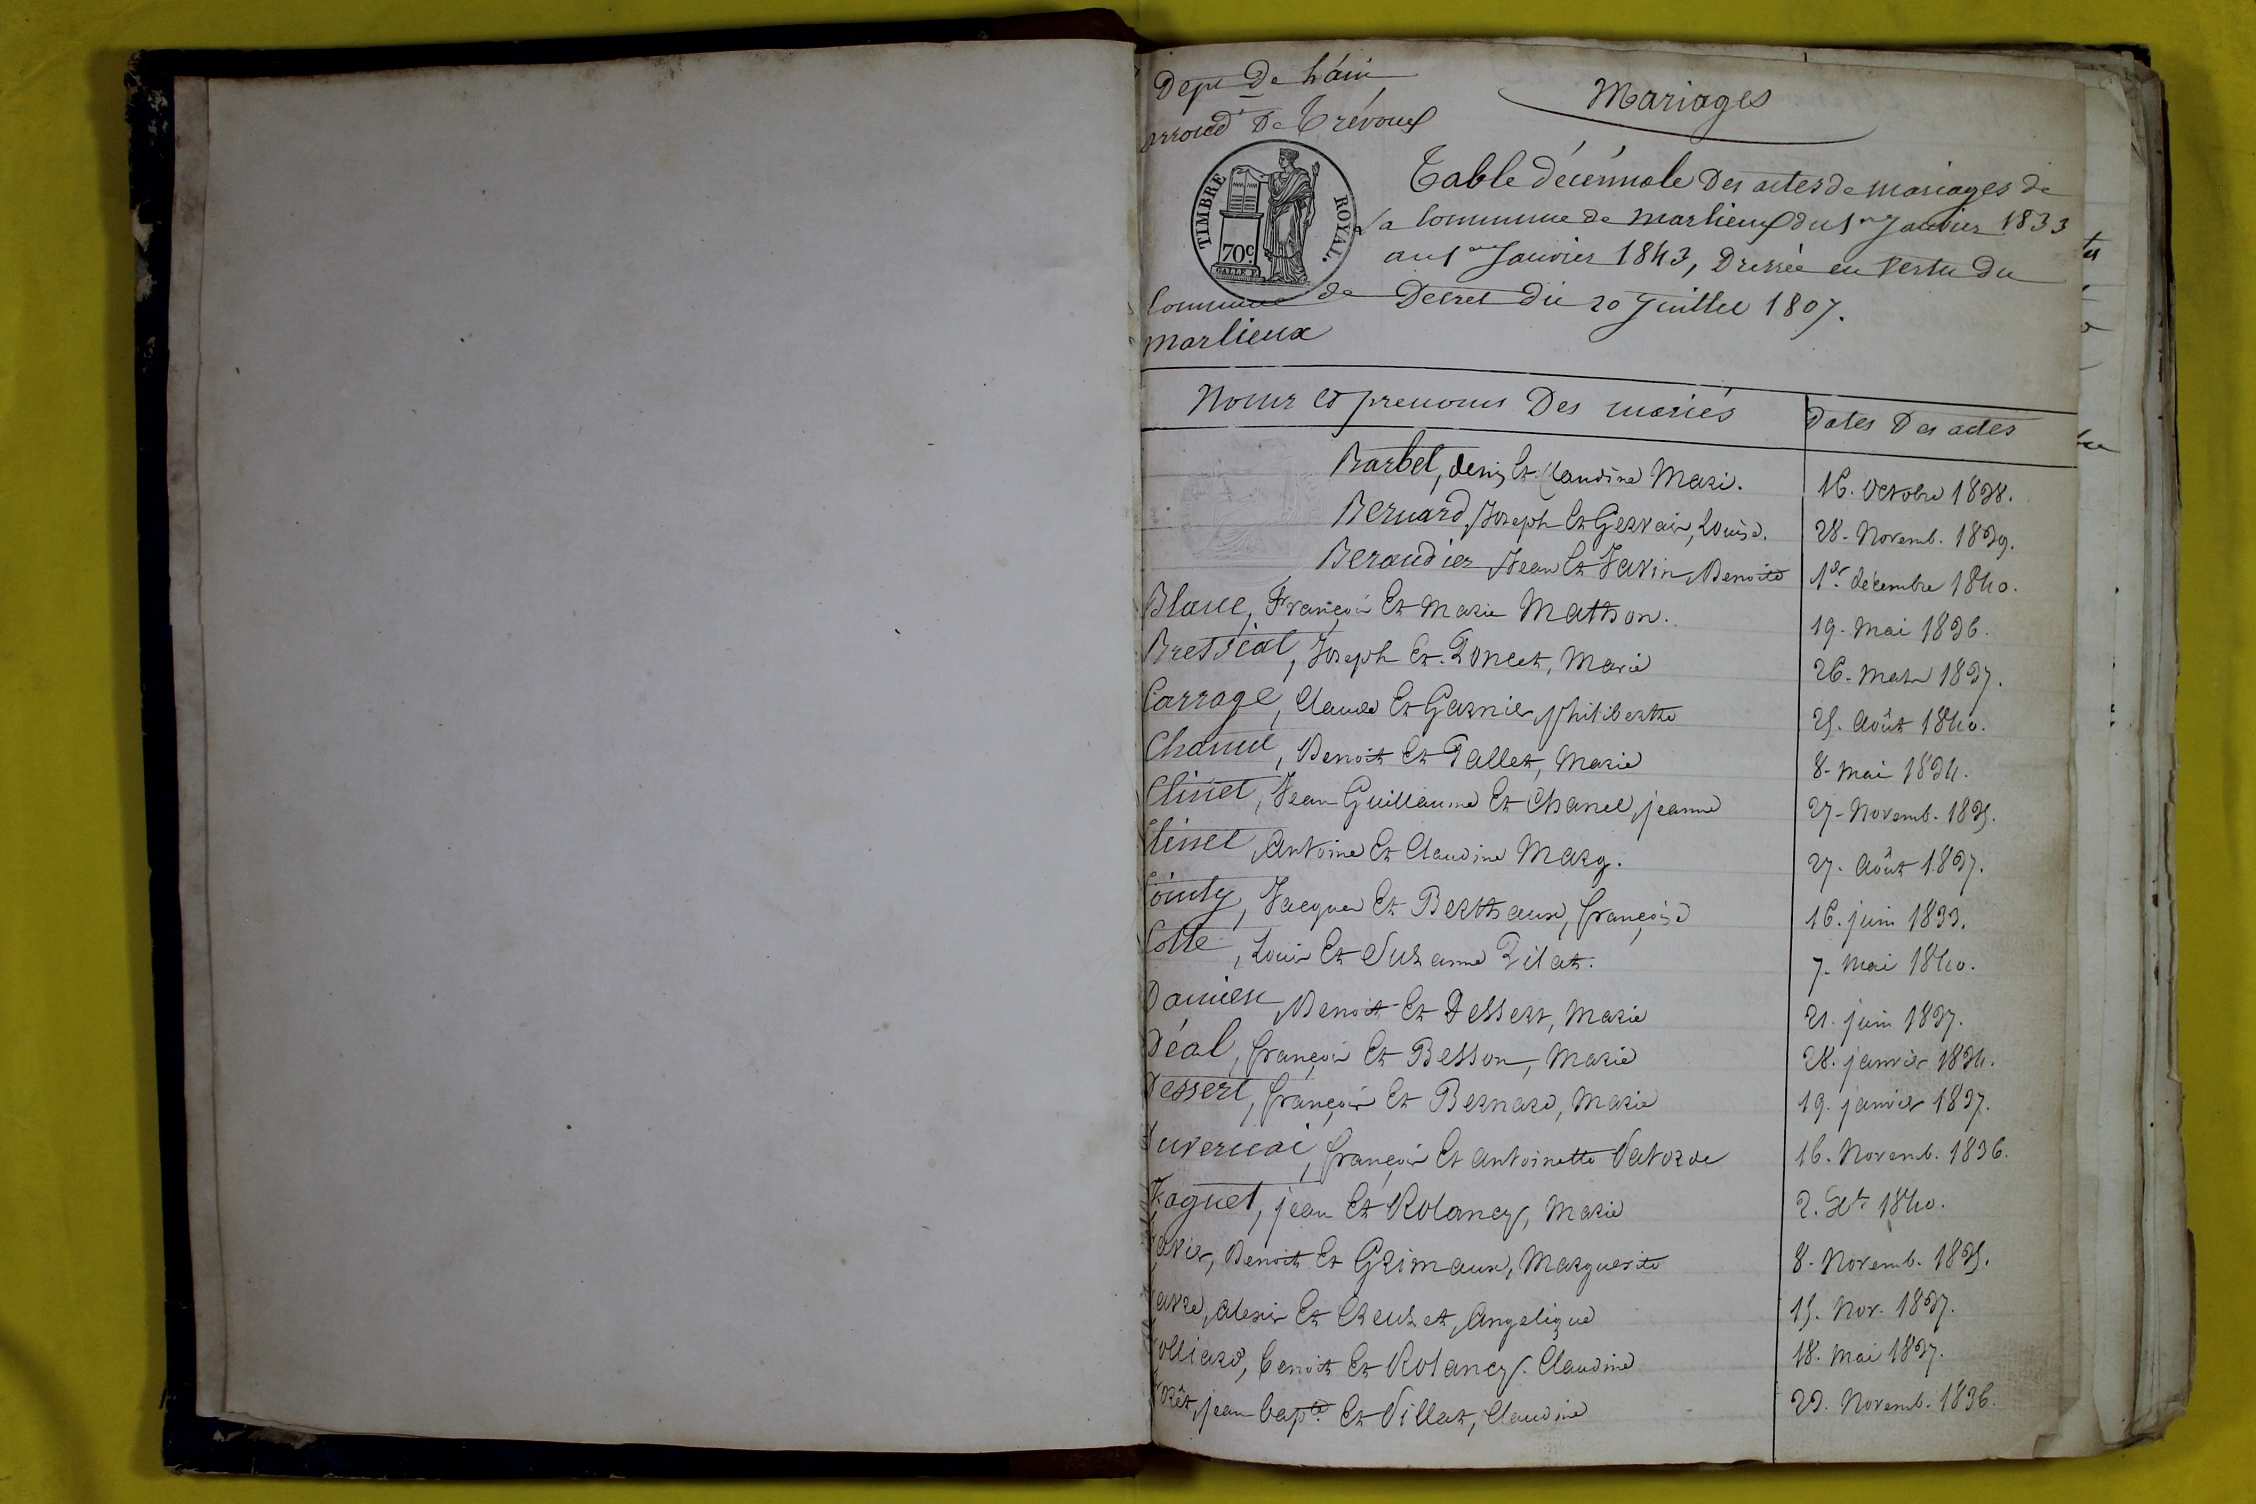 Dept De L'ain
arrond.t De Trévoux
Mariages
TIMBRE ROYAL.
70c.
Table décénnale Des actes de mariages de
la Commune de Marlieux du 1er Janvier 1833
au 1er Janvier 1843, Dressée en vertu Du
Decret du 20 Juillet 1807.
Commune de
Marlieux
Noms et prenoms Des mariés
Dates Des actes
Barbet, denis Et Claudine Mari. 16. octobre 1838.
Bernard, Joseph Et Gervais, Louise. 28. Novemb. 1839.
Beraudier Jean Et Javin, Benoite 1er décembre 1840.
Blanc, François Et Marie Mathon. 19. Mai 1836.
Bressicat, Joseph Et Poncet, Marie 26. 1837.
Carrage, Claude Et Garnier, philiberthe 25. Août 1840.
Chanel, Benoit Et Pallet, Marie 8. mai 1834.
Clinet, Jean Guillaume Et Chanel, jeanne 27. Novemb. 1835.
Clinet, Antoine Et Claudine Mary. 27. Août 1837.
Cointy, Jacques Et Berthaux, françoise 16. juin 1833.
Cotte, Louis Et Suzanne Pilat. 7. Mai 1840.
Damien, Benoit Et Dessert, Marie 21. juin 1837.
Déal, françois Et Besson, Marie 28. janvier 1834.
Dessert, françois Et Bernard, Marie 19. janvier 1837.
Duvernai, françois Et antoinette Vavorde 16. Novemb. 1836.
Faguet, jean Et Rolancy, Marie 2. 1840.
Benoit Et Grimaux, Marguerite 8. Novemb. 1835.
alexis Et Creuzet, Angelique 15. Nov. 1837.
benoit Et Rolancy. Claudine 18. Mai 1837.
jean bapte. Et Villat, Claudine 23. Novemb. 1836.